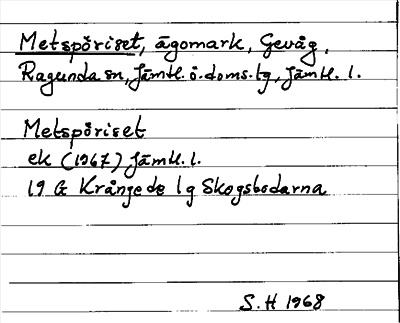 Metspöriset, ägomark, Gevåg,
Ragunda sn, Jämtl. ö. doms. tg, Jämtl. l.
Metspöriset
ek (1967) Jämtl. l.
19 G Krångede l g Skogsbodarna
S. H 1968